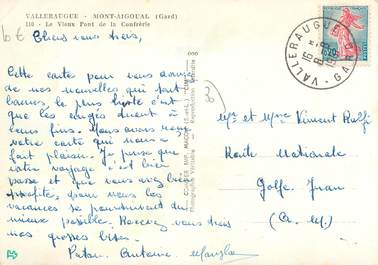 VALLERAUGUE - MONT-AIGOUAL (Gard)
110 - Le Vieux Pont de la Confrérie
Chers vous trois,
Cette carte pour vous donner
de nos nouvelles qui sont
bonnes, le plus triste c'est
que les congés tirent à
leur fins. Nous avons reçu
votre carte qui nous a
fait plaisir. Je pense que
votre voyage c'est bien
passé et que vous avez bien
profité, pour nous les
vacances se poursuivent du
mieux possible. Recevez vous trois
nos grosses bises.
Antoine
CIM
Photographie Véritable - Reproduction interdite
VALLERAUGUE
GARD
0,20
Mr et Mme Vincent
Route Nationale
Golfe Juan
(A. M.)